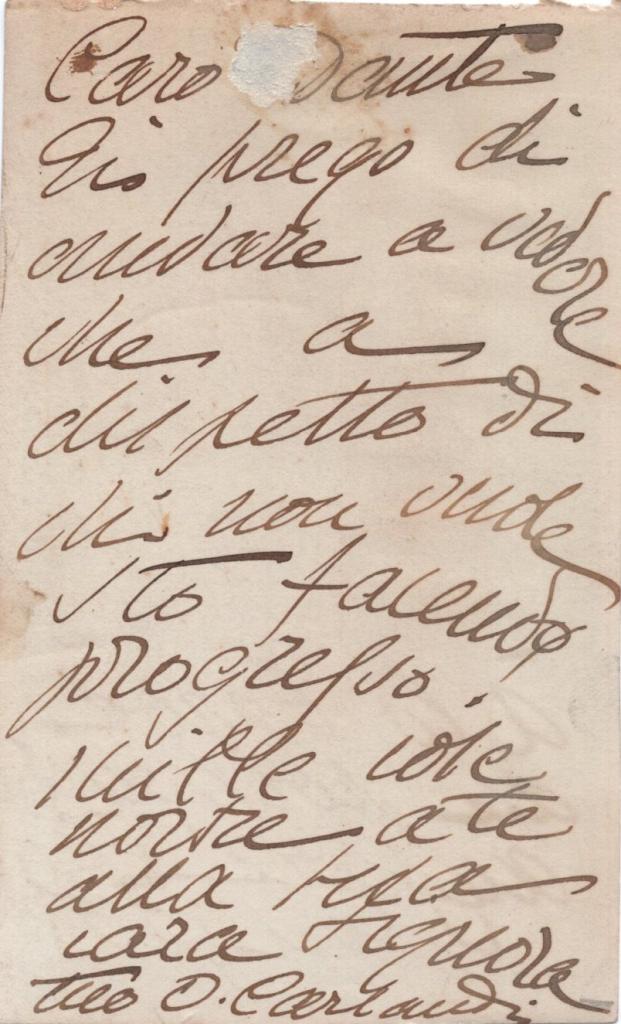 Caro Dante
Ti prego di
andare a vedere
che a
dispetto di
chi non vede
sto facendo
progresso.
Mille cose
nostre a te
alla
cara Signora
tuo O. Carlandi